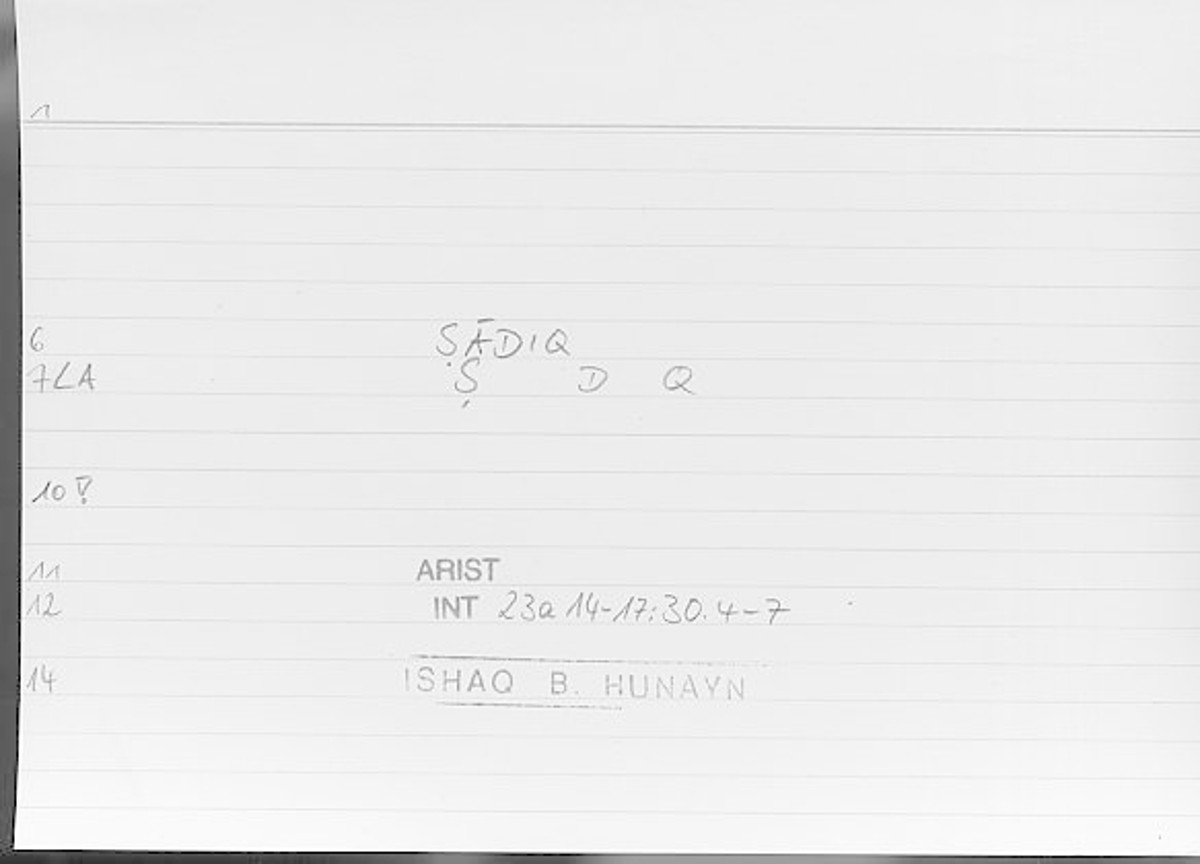 1
6 ṢĀDIQ
7LA Ṣ D Q
10!
11 ARIST
12 INT 23a 14-17:30.4-7
14 ISHAQ B. HUNAYN